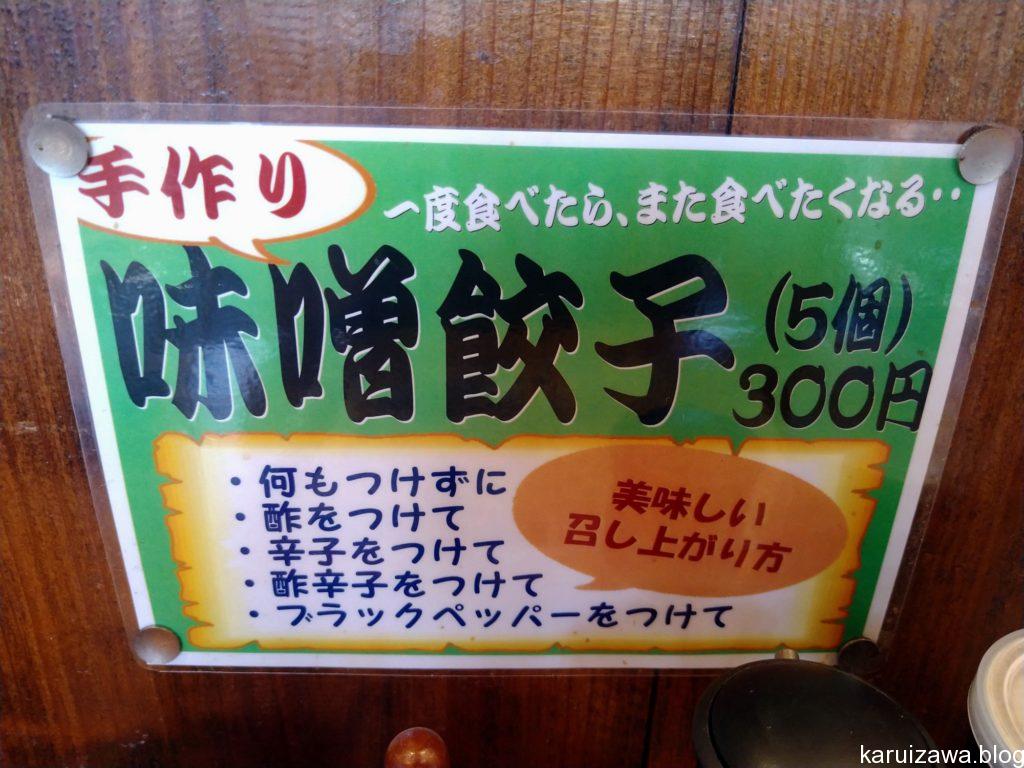 手作り
一度食べたら、また食べたくなる‥
味噌餃子
(5個)
300円
・何もつけずに
・酢をつけて
・辛子をつけて
・酢辛子をつけて
・ブラックペッパーをつけて
美味しい
召し上がり方
karuizawa.blog